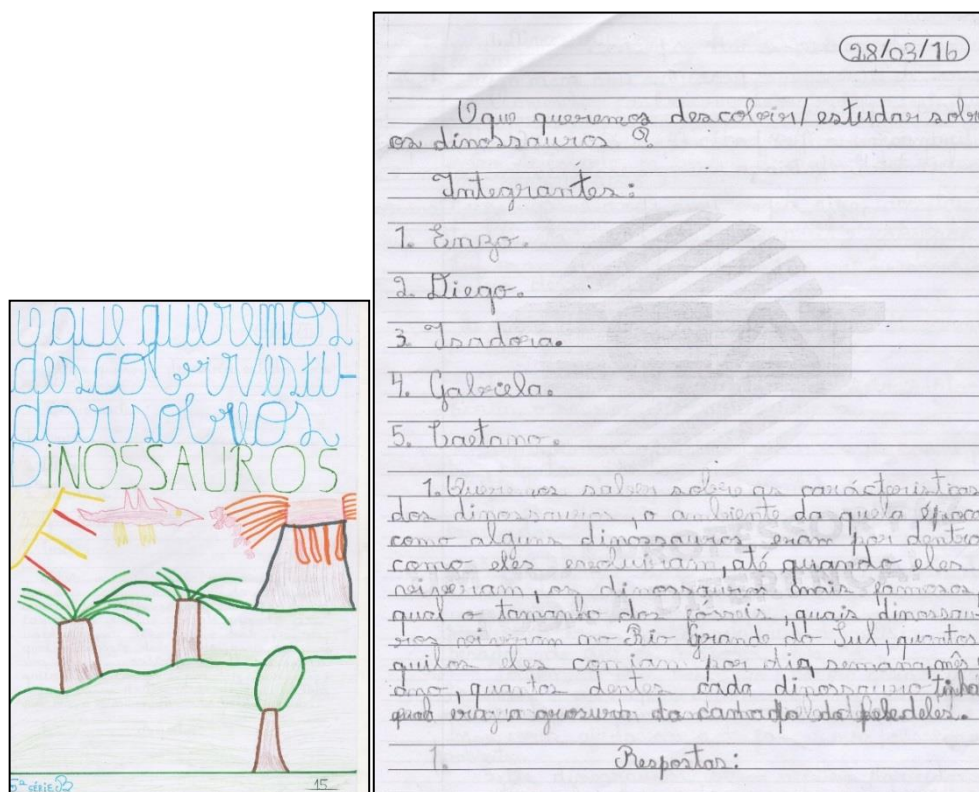 O que queremos
descobrir/estu-
dar sobre os
DINOSSAUROS
5ª SÉRIE B
15
28/03/16
O que queremos descobrir/estudar sobre
os dinossauros?
Integrantes:
1. Enzo.
2. Diego.
3. Isadora.
4. Gabriela.
5. Caetano.
1. Queremos saber sobre as carácteristicas
dos dinossauros, o ambiente da quela época
como alguns dinossauros eram por dentro
como eles evoluiram, até quando eles
viveram, os dinossauros mais famosos,
qual o tamanho dos fósseis, quais dinossau
ros viveram no Rio Grande do Sul, quantos
quilos eles comiam por dia, semana, mês
ano, quantos dentes cada dinossauro tinha
qual era a grosura da camada da pele deles.
1. Respostas: